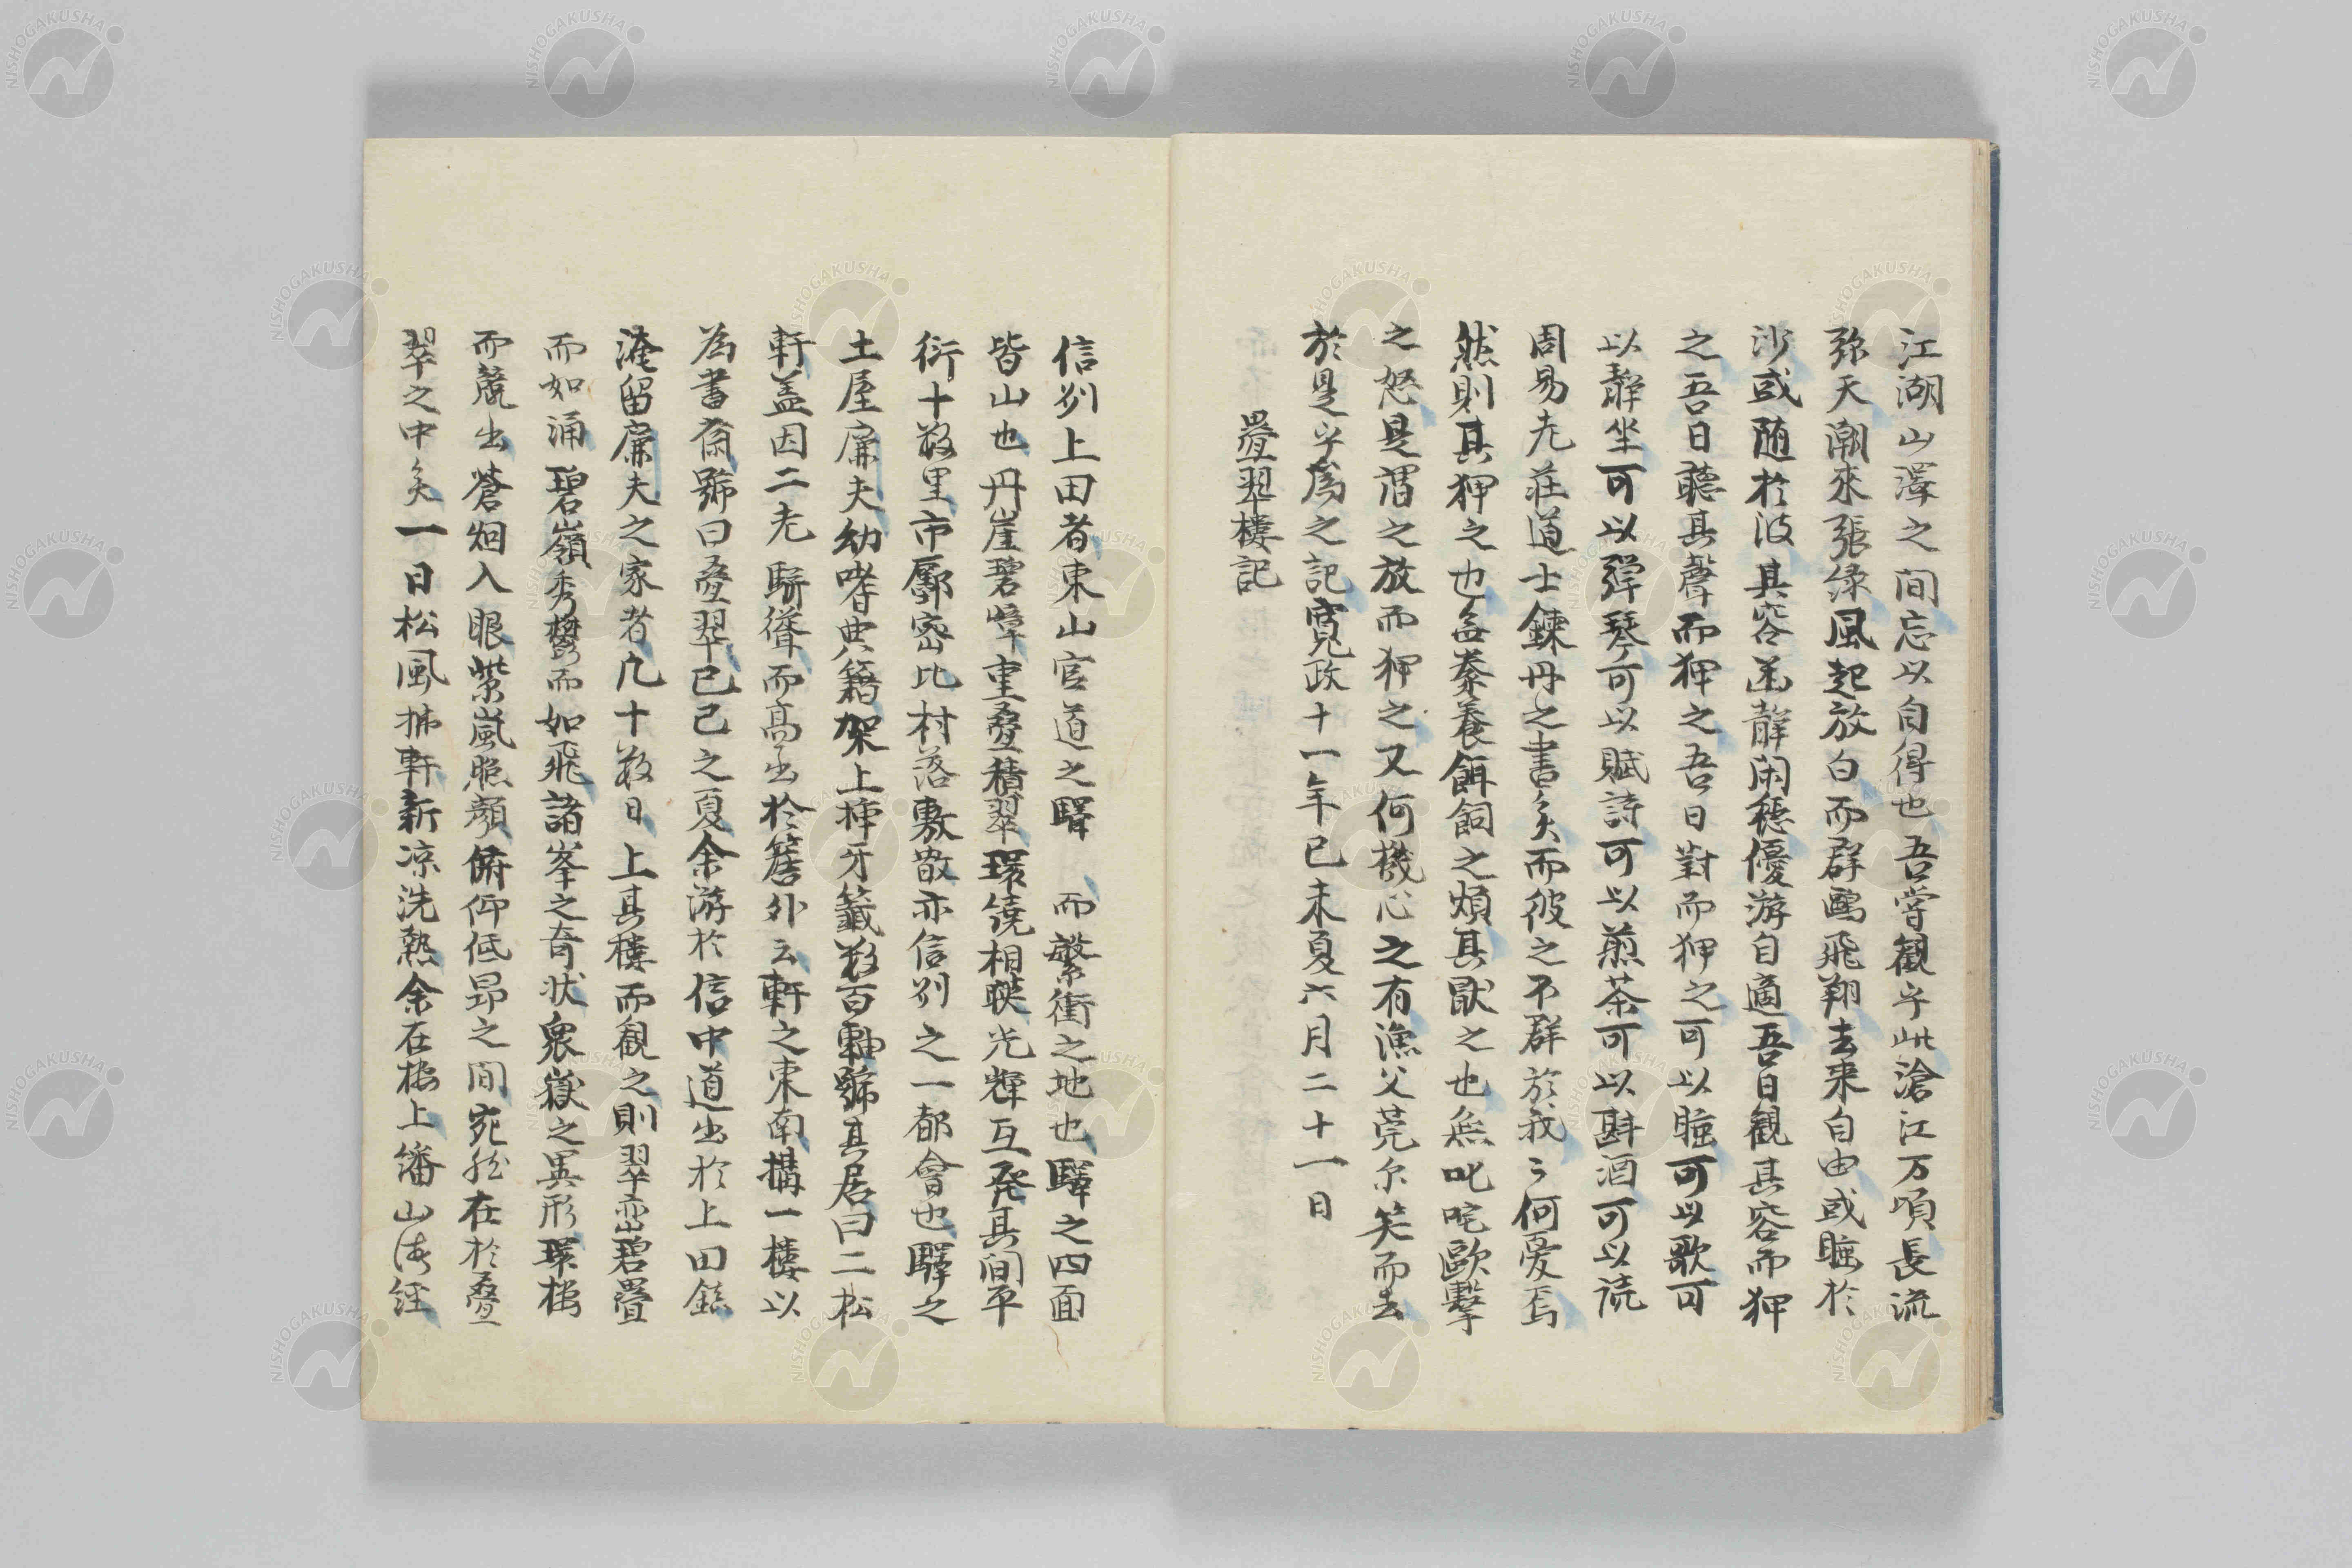 江湖山澤之间忘以自得也吾嘗観乎此滄江万頃長流
弥天潮來張绿風起放白而群鷗飛翔去来自由或睡於
沙或随於波其容甚静閑穏優游自適吾日観其容而狎
之吾日聴其聲而狎之吾日對而狎之可以睡可以歌可
以静坐可以弹琴可以賦詩可以煎茶可以斟酒可以読
周易老荘道士錬丹之書矣而彼之不群於我〻何憂焉
然則其狎之也無豢養餌飼之煩其猒之也無叱咤歐擊
之怒是謂之放而狎之又何機心之有漁父莞尔笑而去
於是乎為之記寛政十一年己未夏六月二十一日
疊翠樓記
信刕上田者東山官道之驛　而繁衝之地也驛之四面
皆山也丹崖碧嶂重疊積翠環绕相映光輝互発其间平
衍十数里市鄽密比村落敷散亦信刕之一都會也驛之
土屋廉夫幼嗜典籍架上挿牙籤数百軸號其居曰二松
軒盖因二老駢聳而高出於簷外云軒之東南搆一樓以
為書齋號曰疊翠已己之夏余游於信中道出於上田館
淹留廉夫之家者凢十数日上其樓而観之則翠巒碧疊
而如涌碧嶺秀欝而如飛諸峯之奇状衆嶽之異形環樓
而競出蒼烟入眼紫嵐照顔俯仰低昂之间宛然在於疊
翠之中矣一日松風拂軒新凉洗熱余在樓上繙山海经